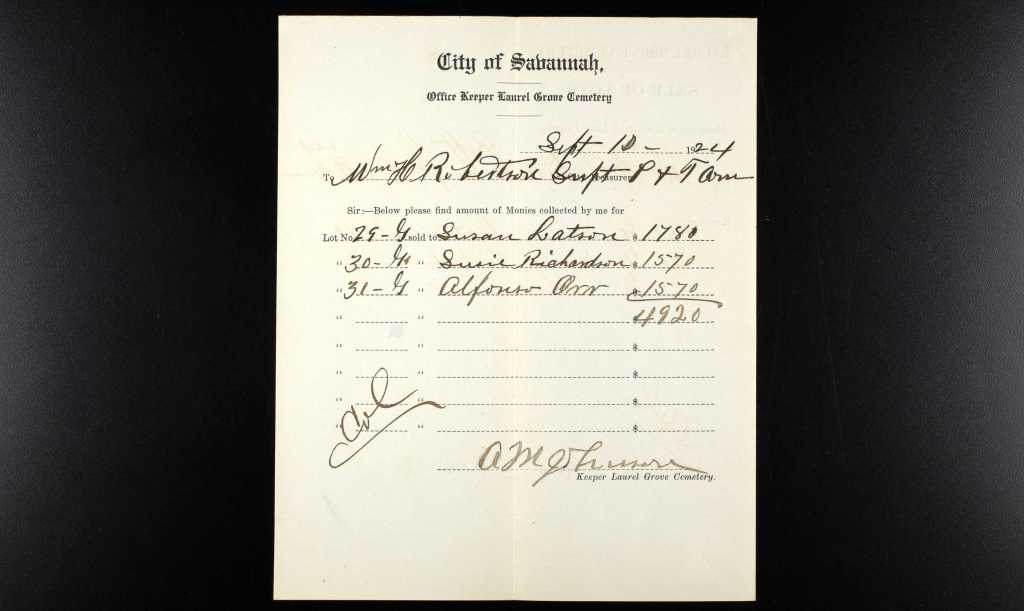 City of Savannah,
Office Keeper Laurel Grove Cemetery
Sept 10 - 1924
To Wm H Robertson Supt P & T Com
Sir:—Below please find amount of Monies collected by me for
Lot No. 29-G sold to Susan Latson $ 1780
" 30-G " Susie Richardson $ 1570
" 31-G " Alfonso Orr $ 1570
" " $ 4920
" " $
" " $
" " $
" " $
Col
A M Johnson
Keeper Laurel Grove Cemetery.